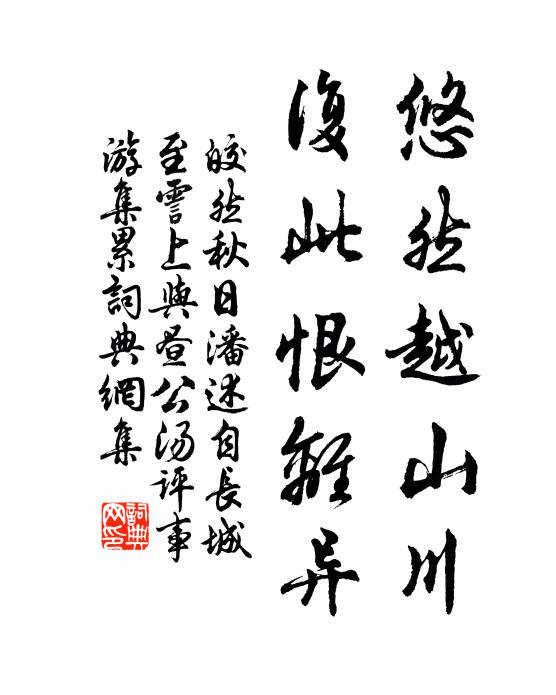 悠然越山川
復此恨離异
皎然秋日潘述自長城
至霅上與昼公湯評事
游集累詞典網集
詞典
网印